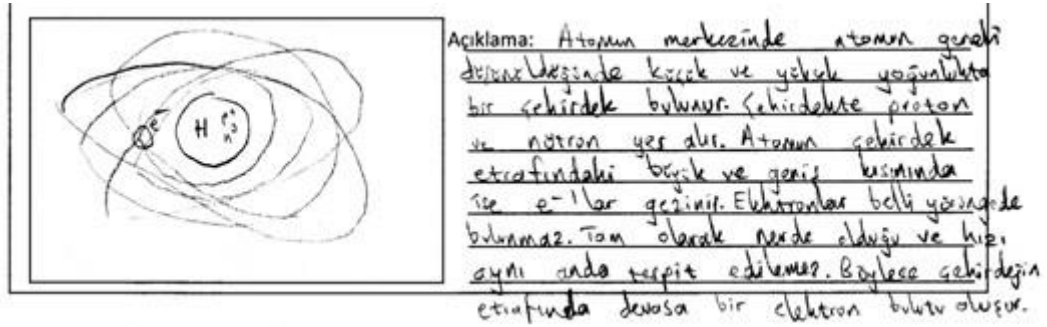 H p⁺ n⁰
e⁻
Açıklama: Atomun merkezinde atomun geneli
düşünüldüğünde küçük ve yüksek yoğunlukta
bir çekirdek bulunur. Çekirdekte proton
ve nötron yer alır. Atomun çekirdek
etrafındaki büyük ve geniş kısmında
ise e⁻'lar gezinir. Elektronlar belli yörüngede
bulunmaz. Tam olarak nerde olduğu ve hızı
aynı anda tespit edilemez. Böylece çekirdeğin
etrafında devasa bir elektron bulutu oluşur.